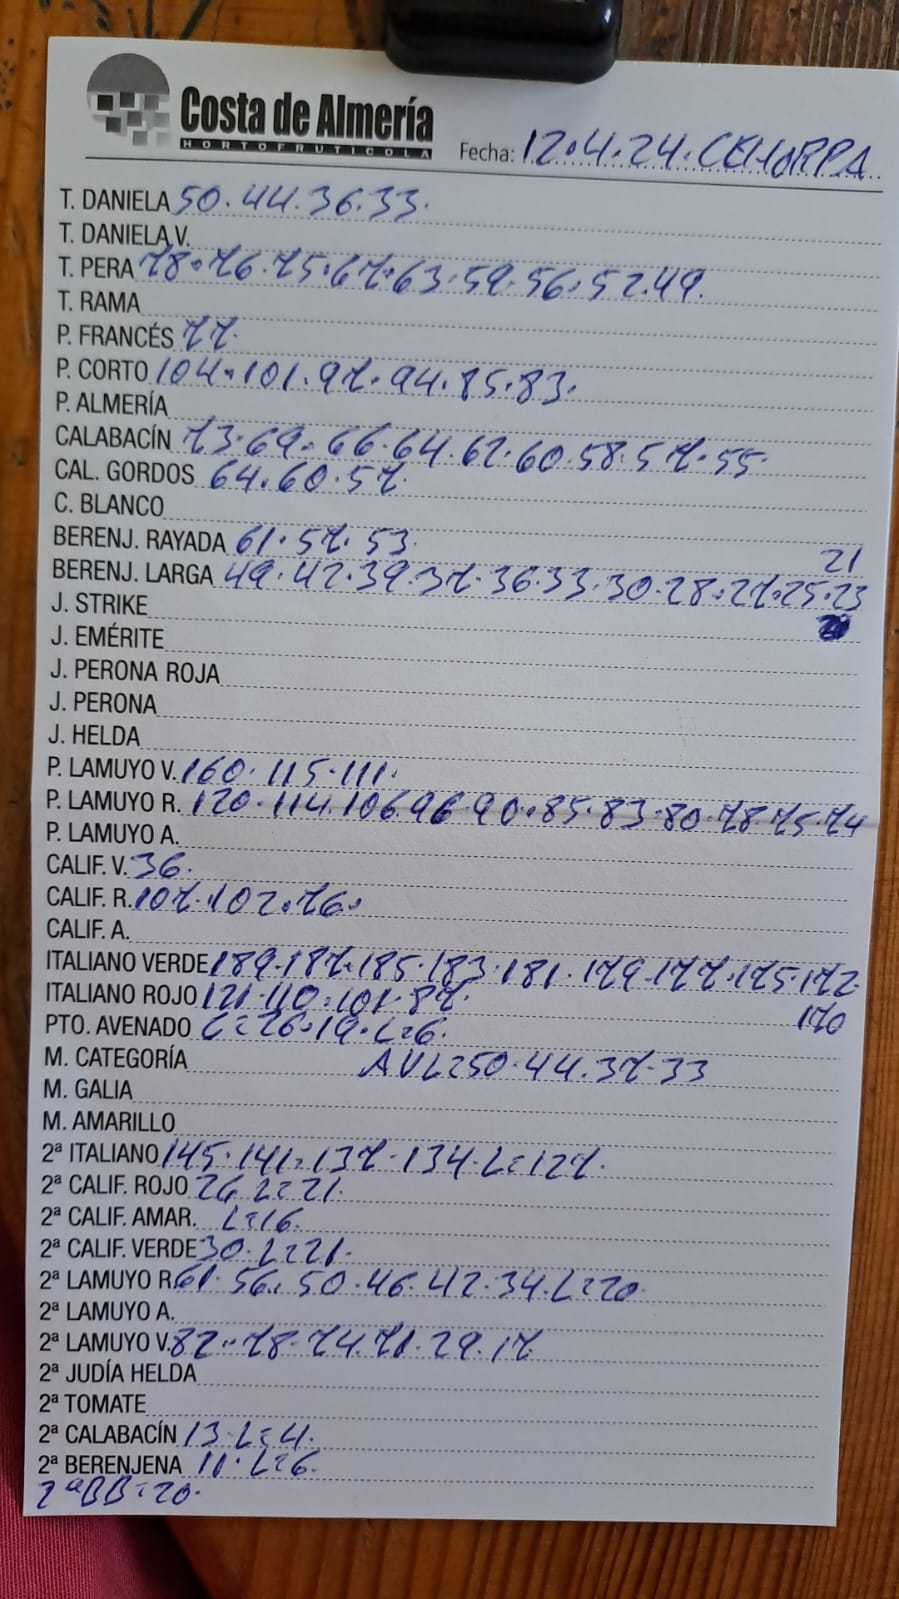 Costa de Almería
HORTOFRUTICOLA
Fecha: 12.4.24. CEHORPA
T. DANIELA 50.44.36.33.
T. DANELA V.
T. PERA 78.76.75.67.63.59.56.52.49.
T. RAMA
P. FRANCÉS 77.
P. CORTO 104.101.97.94.85.83.
P. ALMERÍA
CALABACÍN 73.69.66.64.62.60.58.57.55.
CAL. GORDOS 64.60.57.
C. BLANCO
BERENJ. RAYADA 61.57.53.
21
BERENJ. LARGA 49.42.39.37.36.33.30.28.27.25.23
J. STRIKE
J. EMÉRITE
J. PERONA ROJA
J. PERONA
J. HELDA
P. LAMUYO V. 160.115.111.
P. LAMUYO R. 120.114.106.96.90.85.83.80.78.75.74
P. LAMUYO A.
CALIF. V. 36.
CALIF. R. 107.102.76.
CALIF. A.
ITALIANO VERDE 189.187.185.183.181.179.177.175.172.
170
ITALIANO ROJO 121.110.101.87.
PTO. AVENADO C=26.19.L=6.
M. CATEGORÍA AVL=50.44.37.33
M. GALIA
M. AMARILLO
2ª ITALIANO 145.141.137.134.L=127.
2ª CALIF. ROJO 26.L=21.
2ª CALIF. AMAR. L=16.
2ª CALIF. VERDE 30.L=21.
2ª LAMUYO R. 61.56.50.46.42.34.L=20.
2ª LAMUYO A.
2ª LAMUYO V. 82.78.74.71.29.17.
2ª JUDÍA HELDA
2ª TOMATE
2ª CALABACÍN 13.L=4.
2ª BERENJENA 11.L=6.
2ªBB=20.